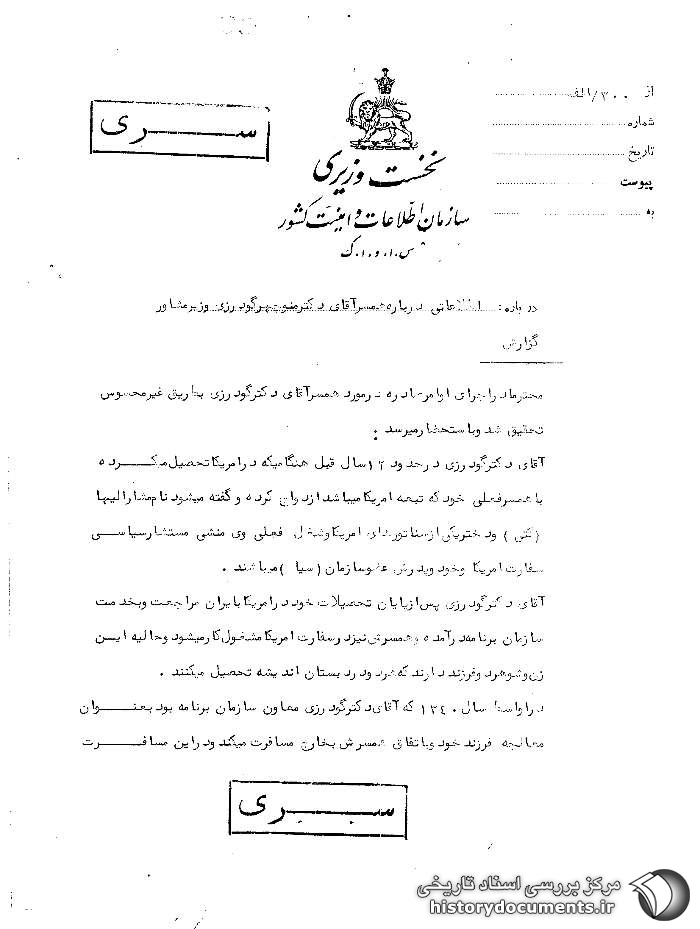 از ۳۰۰/الف
شماره
تاریخ
پیوست
به
سری
نخست وزیری
سازمان اطلاعات و امنیت کشور
س.ا.و.ا.ک
درباره: اطلاعاتی درباره همسر آقای دکتر منوچهر گودرزی وزیر مشاور
گزارش
محترما در اجرای اوامر صادره در مورد همسر آقای دکتر گودرزی بطریق غیر محسوس
تحقیق شد و باستحضار میرسد .
آقای دکتر گودرزی در حدود ۱۲ سال قبل هنگامیکه در امریکا تحصیل میکرده
با همسر فعلی خود که تبعه امریکا میباشد ازدواج کرده و گفته میشود نام مشارالیها
( ) و دختر یکی از سناتورهای امریکا و شغل فعلی وی منشی مستشار سیاسی
سفارت امریکا و خود و پدرش عضو سازمان (سیا) میباشند .
آقای دکتر گودرزی پس از پایان تحصیلات خود در امریکا بایران مراجعت و بخدمت
سازمان برنامه درآمده و همسرش نیز در سفارت امریکا مشغول کار میشود و حالیه ایـن
زن و شوهر دو فرزند دارند که هر دو در دبستان اندیشه تحصیل میکنند .
در اواسط سال ۱۳۴۰ که آقای دکتر گودرزی معاون سازمان برنامه بود بعنـوان
معالجه فرزند خود و باتفاق همسرش بخارج مسافرت میکند و در این مسافـرت
سری
مرکز بررسی اسناد تاریخی
historydocuments.ir